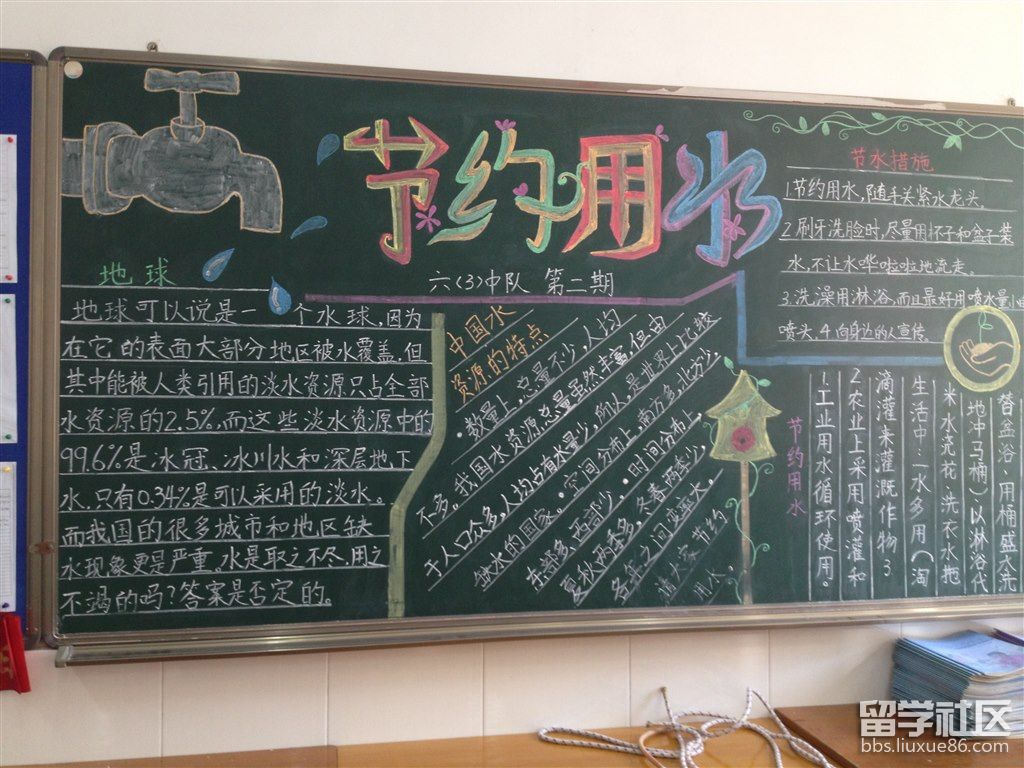 节约用水
六(3)中队 第二期
地球
地球可以说是一个水球,因为
在它的表面大部分地区被水覆盖,但
其中能被人类引用的淡水资源只占全部
水资源的2.5%,而这些淡水资源中的
99.6%是冰冠、冰川水和深层地下
水,只有0.34%是可以采用的淡水。
而我国的很多城市和地区缺
水现象更是严重,水是取之不尽,用之
不竭的吗?答案是否定的。
中国水
资源的特点
·数量上,总量不少,人均
不多。我国水资源总量虽然丰富,但由
于人口众多,人均占有水量少,所以,是世界上比较
缺水的国家。·空间分布上,南方多,北方少,
东部多,西部少。·时间分布上,
夏秋两季多,冬春两季少,
各年之间变率大。
请大家节约
用水。
节水措施
1.节约用水,随手关紧水龙头。
2.刷牙洗脸时,尽量用杯子和盆子装
水,不让水哗啦啦地流走。
3.洗澡用淋浴,而且最好用喷水量小的
喷头。4.向身边的人宣传。
节约用水
1.工业用水循环使用。
2.农业上采用喷灌和
滴灌来灌溉作物3
生活中:一水多用(淘
米水浇花、洗衣水拖
地冲马桶)以淋浴代
替盆浴、用桶盛水洗
留学社区
bbs.liuxue86.com